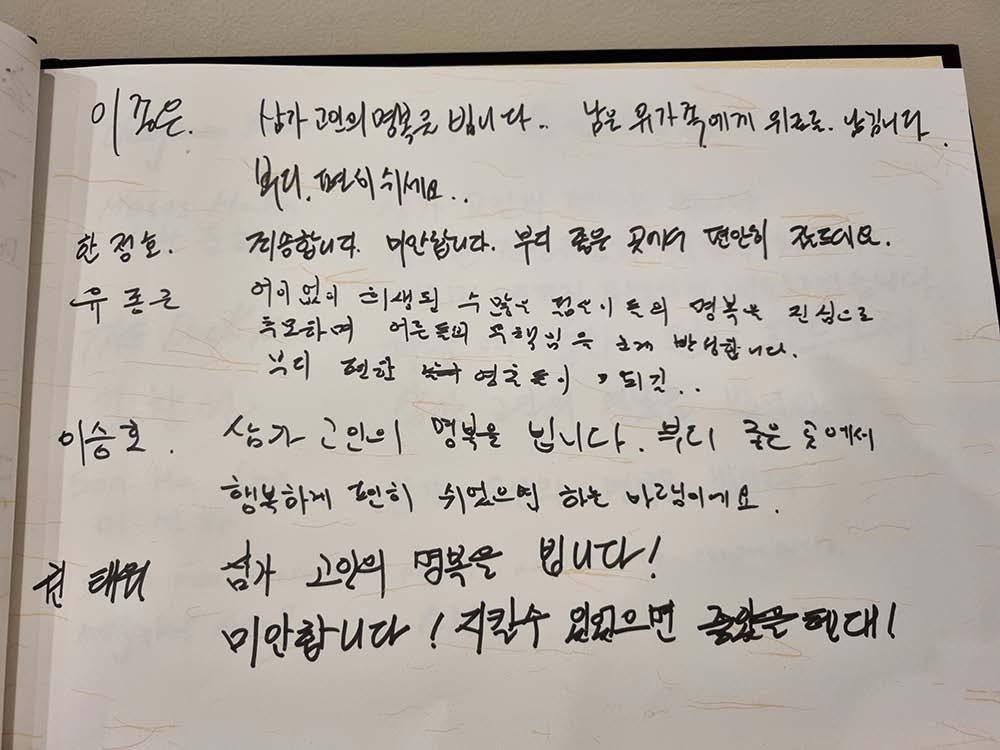 이정은. 삼가 고인의 명복을 빕니다.. 남은 유가족에게 위로를. 남깁니다.
부디. 편히 쉬세요..
한정호. 죄송합니다. 미안합니다. 부디 좋은 곳에서 편안히 잠드세요.
유종근 어이없이 희생된 수많은 젊은이들의 명복을 진심으로
추모하며 어른들의 무책임을 크게 반성합니다.
부디 편한 영혼들이 되길..
이승호. 삼가 고인의 명복을 빕니다. 부디 좋은 곳에서
행복하게 편히 쉬었으면 하는 바램이에요.
태워 삼가 고인의 명복을 빕니다!
미안합니다! 지킬수 있었으면 텐데!